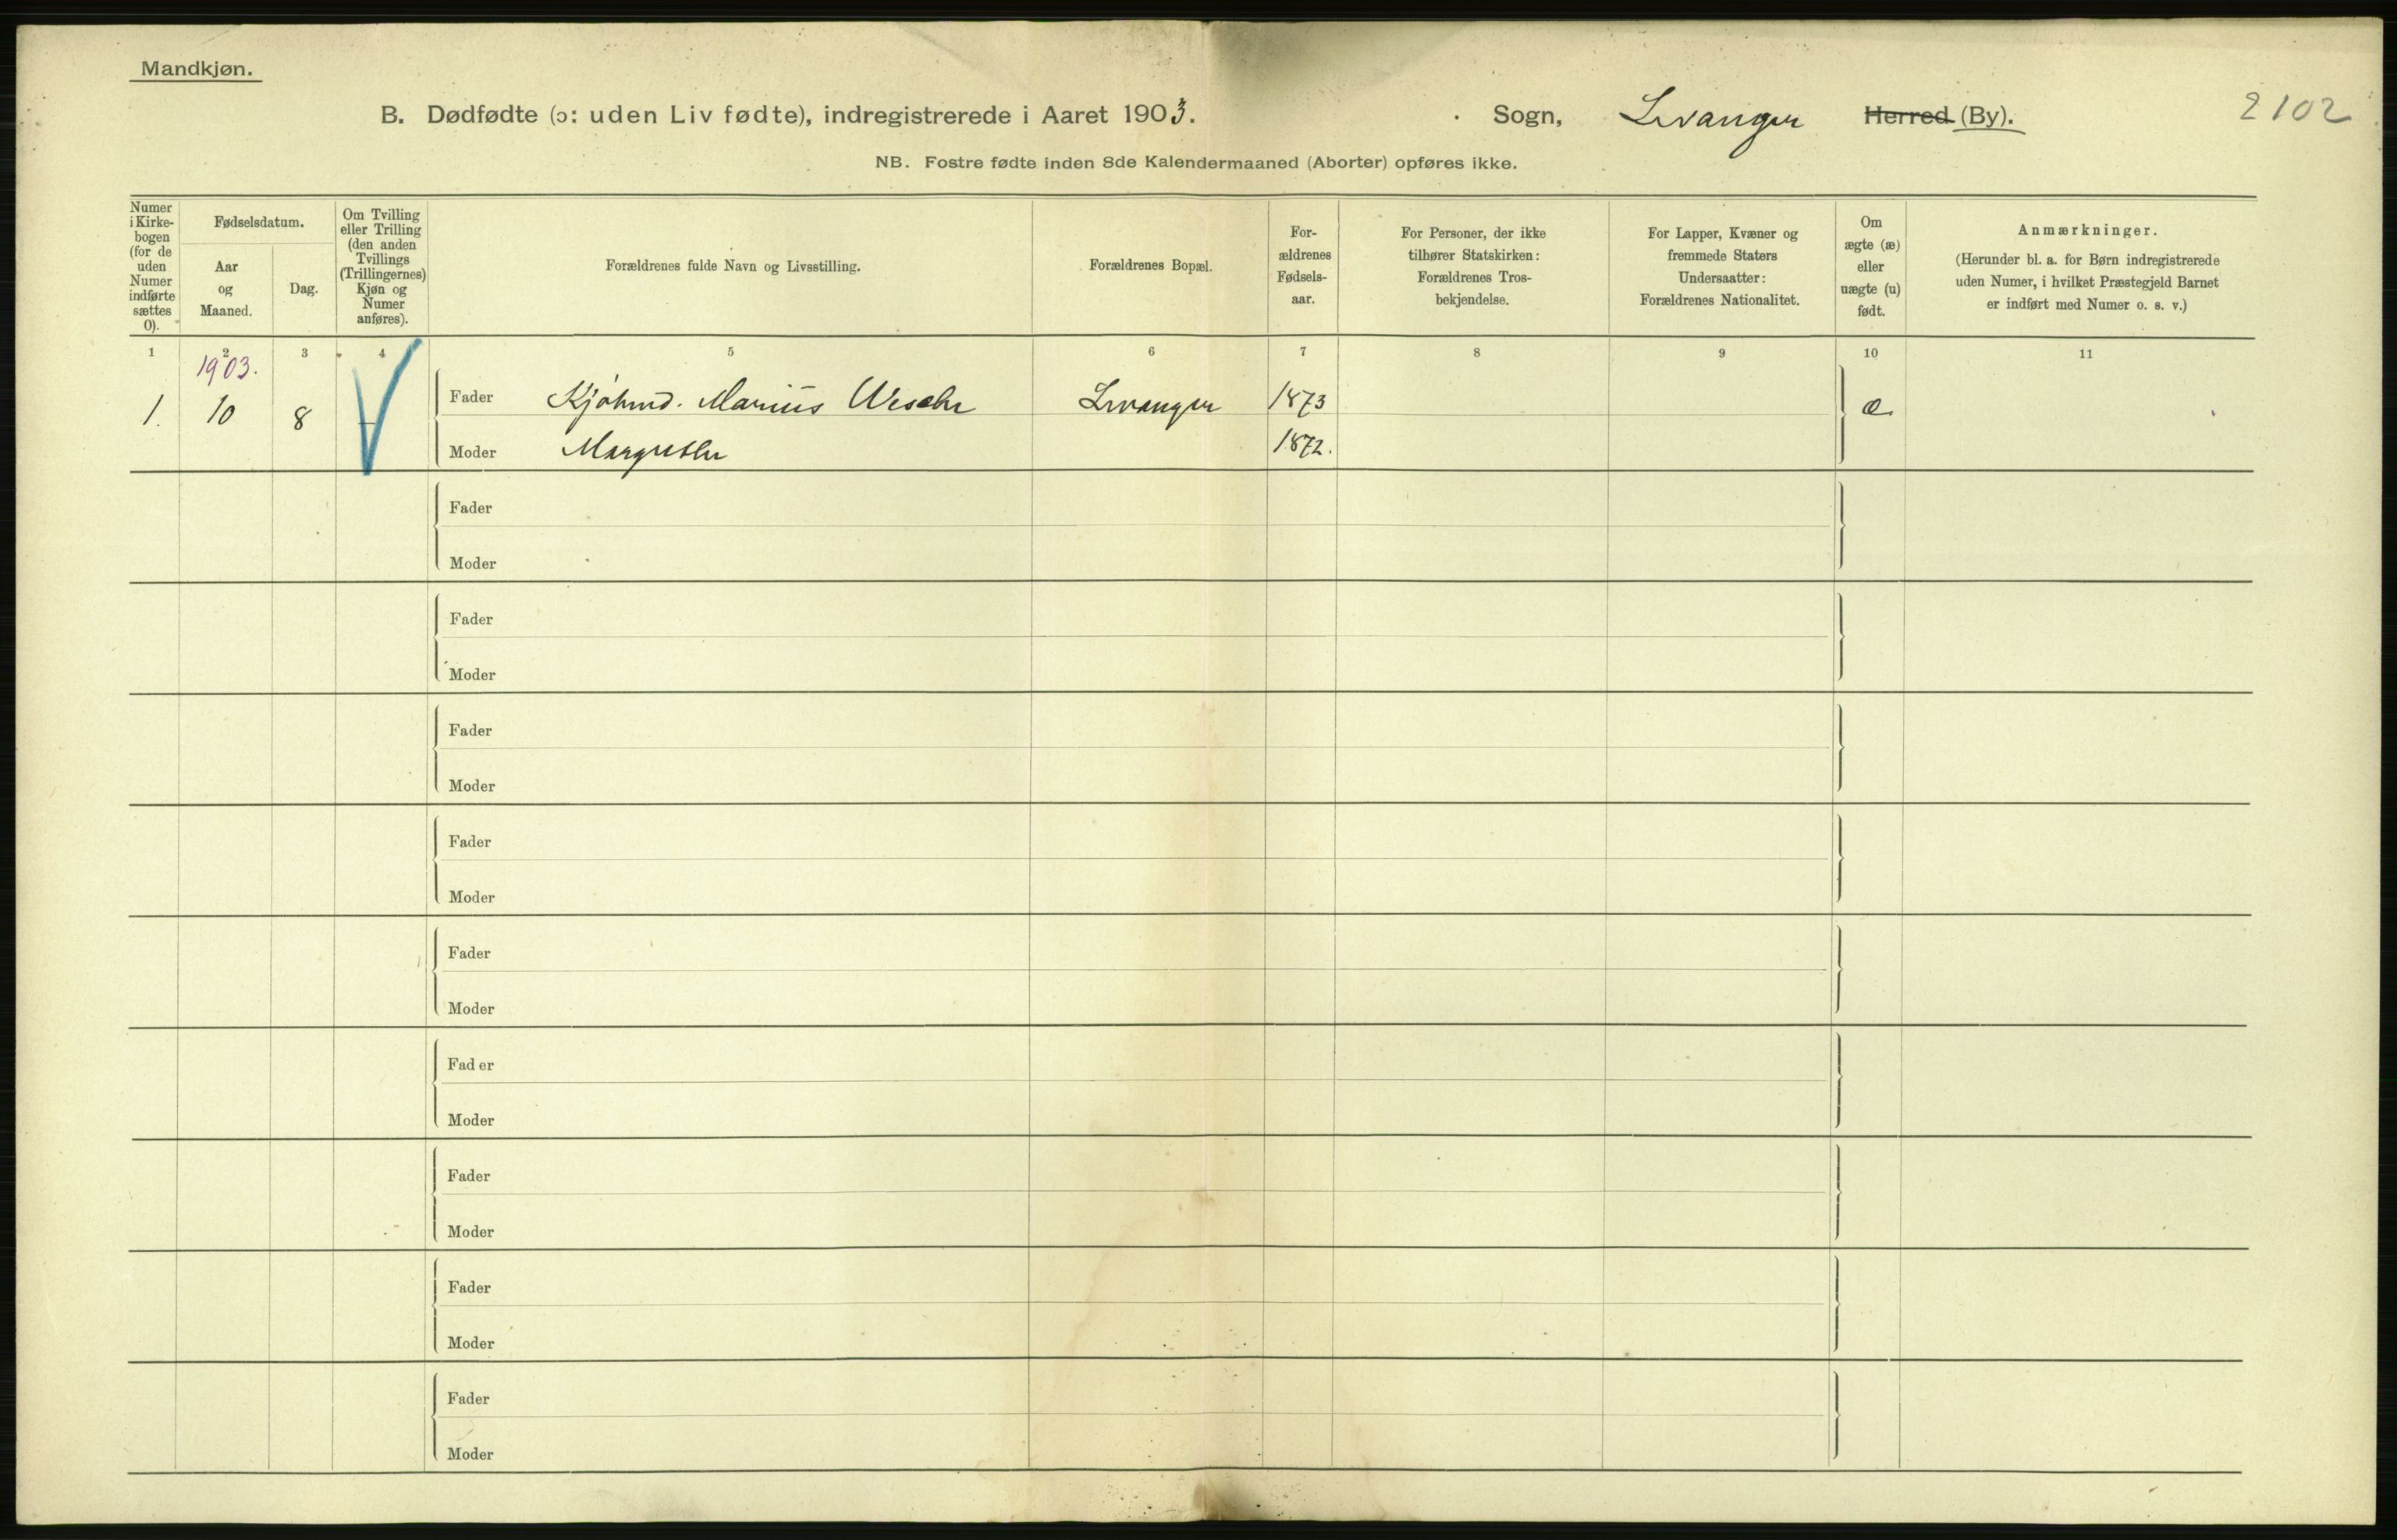 Mandkjøn.
B. Dødfødte (ɔ: uden Liv fødte), indregistrerede i Aaret 1903. Sogn, Levanger Herred (By). 2102
NB. Fostre fødte inden 8de Kalendermaaned (Aborter) opføres ikke.
Numer i Kirke-bogen (for de uden Numer indførte sættes 0).
Fødselsdatum.
Aar og Maaned.
Dag.
Om Tvilling eller Trilling (den anden Tvillings (Trillingernes) Kjøn og Numer anføres).
Forældrenes fulde Navn og Livsstilling.
Forældrenes Bopæl.
For-ældrenes Fødsels-aar.
For Personer, der ikke tilhører Statskirken: Forældrenes Tros-bekjendelse.
For Lapper, Kvæner og fremmede Staters Undersaatter: Forældrenes Nationalitet.
Om ægte (æ) eller uægte (u) født.
Anmærkninger.
(Herunder bl. a. for Børn indregistrerede uden Numer, i hvilket Præstegjeld Barnet er indført med Numer o. s. v.)
1 2 3 4 5 6 7 8 9 10 11
1903.
1. 10 8 Fader Kjøbmd. Marius Levanger 1873 æ
Moder Margrethe 1872.
Fader
Moder
Fader
Moder
Fader
Moder
Fader
Moder
Fader
Moder
Fader
Moder
Fader
Moder
Fader
Moder
Fader
Moder